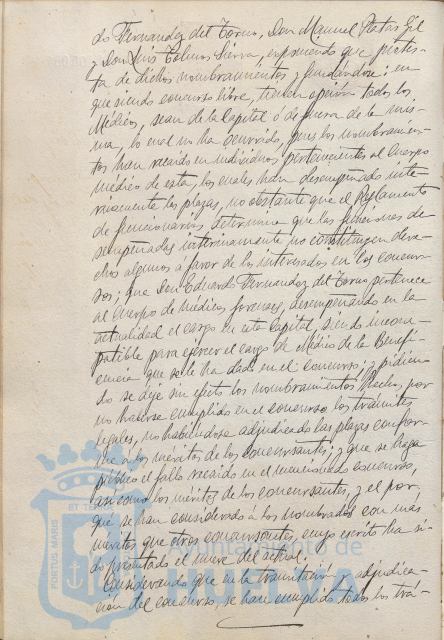 do Fernandez del Torno, Don Manuel Matas Gil
y Don Luis Tolmos Sierra, exponiendo que protes-
ta de dichos nombramientos, fundándose: en
que siendo concurso libre, tienen opción todos los
Médicos, sean de la Capital ó de fuera de la mis-
ma, lo cual no ha ocurrido, pues los nombramien-
tos han recaido en individuos pertenecientes al Cuerpo
médico de esta, los cuales han desempeñado inte-
rinamente las plazas, no obstante que el Reglamento
de funcionarios determina que las funciones de
sempeñadas interinamente no constituyen dere-
chos algunos á favor de los interesados en los concur-
sos; que Don Eduardo Fernandez del Torno pertenece
al Cuerpo de médicos forenses, desempeñando en la
actualidad el cargo en esta Capital, siendo incom
patible para ejercer el cargo de Médico de la Benefi-
cencia que se le ha dado en el concurso; y pidien-
do se deje sin efecto los nombramientos hechos, por
no haberse cumplido en el concurso los trámites
legales, no habiéndose adjudicado las plazas confor-
me á los méritos de los concursantes; y que se haga
público el fallo recaido en el mencionado concurso,
así como los méritos de los concursantes, y el por
qué se han considerado á los nombrados con más
méritos que otros concursantes, cuyo escrito ha si-
do presentado el nueve del actual.
Considerando que en la tramitación y adjudica-
ción del concurso, se han cumplido todos los trá-
PORTUS MARIS
ET TERRÆ
Ayuntamiento de
HUELVA